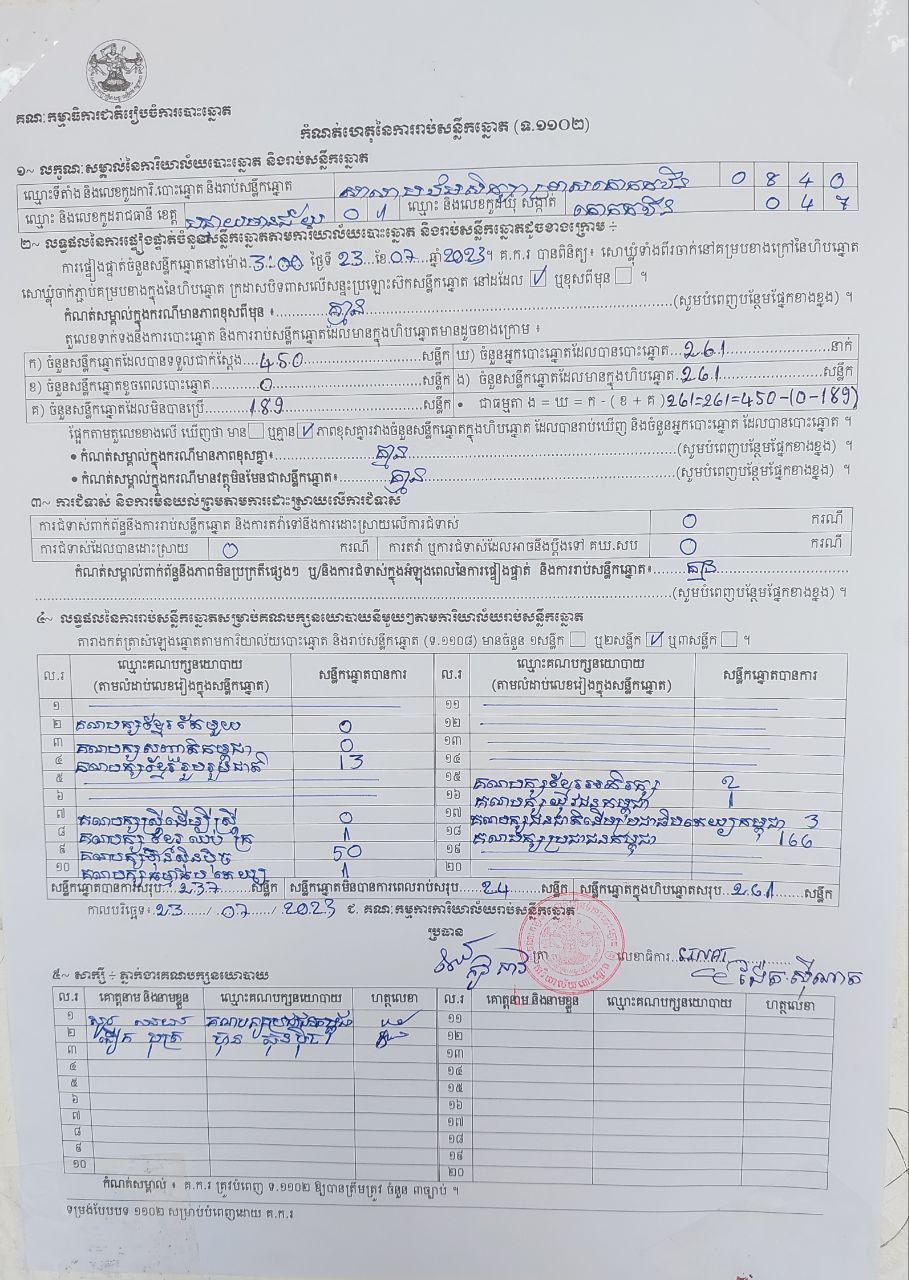 គណៈកម្មាធិការជាតិរៀបចំការបោះឆ្នោត
កំណត់ហេតុនៃការរាប់សន្លឹកឆ្នោត (ទ.១១០២)
១~ លក្ខណៈសម្គាល់នៃការិយាល័យបោះឆ្នោត និងរាប់សន្លឹកឆ្នោត
ឈ្មោះទីតាំង និងលេខកូដការិ.បោះឆ្នោត និងរាប់សន្លឹកឆ្នោត 0 8 4 0
ឈ្មោះ និងលេខកូដរាជធានី ខេត្ត បន្ទាយមានជ័យ 0 1 ឈ្មោះ និងលេខកូដឃុំ សង្កាត់ 0 4 7
២~ លទ្ធផលនៃការផ្ទៀងផ្ទាត់ចំនួនសន្លឹកឆ្នោតតាមការិយាល័យបោះឆ្នោត និងរាប់សន្លឹកឆ្នោតដូចខាងក្រោម ÷
ការផ្ទៀងផ្ទាត់ចំនួនសន្លឹកឆ្នោតនៅម៉ោង 3:00 ថ្ងៃទី 23 ខែ 07 ឆ្នាំ 2023។ គ.ក.រ បានពិនិត្យ៖ សោឃ្លុំទាំងពីរចាក់នៅគម្របខាងក្រៅនៃហិបឆ្នោត
សោឃ្លុំចាក់ភ្ជាប់គម្របខាងក្នុងនៃហិបឆ្នោត ក្រដាសបិទពាសលើសន្ទះប្រឡោះស៊កសន្លឹកឆ្នោត នៅដដែល ✓ ឬខុសពីមុន ។
កំណត់សម្គាល់ក្នុងករណីមានភាពខុសពីមុន ៖ គ្មាន (សូមបំពេញបន្ថែមផ្នែកខាងខ្នង) ។
តួលេខទាក់ទងនឹងការបោះឆ្នោត និងការរាប់សន្លឹកឆ្នោតដែលមានក្នុងហិបឆ្នោតមានដូចខាងក្រោម ៖
ក) ចំនួនសន្លឹកឆ្នោតដែលបានទទួលជាក់ស្តែង 450 សន្លឹក ឃ) ចំនួនអ្នកបោះឆ្នោតដែលបានបោះឆ្នោត 261 នាក់
ខ) ចំនួនសន្លឹកឆ្នោតខូចពេលបោះឆ្នោត 0 សន្លឹក ង) ចំនួនសន្លឹកឆ្នោតដែលមានក្នុងហិបឆ្នោត 261 សន្លឹក
គ) ចំនួនសន្លឹកឆ្នោតដែលមិនបានប្រើ 189 សន្លឹក • ជាធម្មតា ង = ឃ = ក - ( ខ + គ ) 261=261=450-(0-189)
ផ្អែកតាមតួលេខខាងលើ ឃើញថា មាន ឬគ្មាន ✓ ភាពខុសគ្នារវាងចំនួនសន្លឹកឆ្នោតក្នុងហិបឆ្នោត ដែលបានរាប់ឃើញ និងចំនួនអ្នកបោះឆ្នោត ដែលបានបោះឆ្នោត ។
• កំណត់សម្គាល់ក្នុងករណីមានភាពខុសគ្នា៖ គ្មាន (សូមបំពេញបន្ថែមផ្នែកខាងខ្នង) ។
• កំណត់សម្គាល់ក្នុងករណីមានវត្ថុមិនមែនជាសន្លឹកឆ្នោត៖ គ្មាន (សូមបំពេញបន្ថែមផ្នែកខាងខ្នង) ។
៣~ ការជំទាស់ និងការមិនយល់ព្រមតាមការដោះស្រាយលើការជំទាស់
ការជំទាស់ពាក់ព័ន្ធនឹងការរាប់សន្លឹកឆ្នោត និងការតវ៉ាទៅនឹងការដោះស្រាយលើការជំទាស់ 0 ករណី
ការជំទាស់ដែលបានដោះស្រាយ 0 ករណី ការតវ៉ា ឬការជំទាស់ដែលអាចនឹងប្តឹងទៅ គឃ.សប 0 ករណី
កំណត់សម្គាល់ពាក់ព័ន្ធនឹងភាពមិនប្រក្រតីផ្សេងៗ ឬ/និងការជំទាស់ក្នុងអំឡុងពេលនៃការផ្ទៀងផ្ទាត់ និងការរាប់សន្លឹកឆ្នោត៖ គ្មាន
(សូមបំពេញបន្ថែមផ្នែកខាងខ្នង) ។
៤~ លទ្ធផលនៃការរាប់សន្លឹកឆ្នោតសម្រាប់គណបក្សនយោបាយនីមួយៗតាមការិយាល័យរាប់សន្លឹកឆ្នោត
តារាងកត់ត្រាសំឡេងឆ្នោតតាមការិយាល័យបោះឆ្នោត និងរាប់សន្លឹកឆ្នោត (ទ.១១០៨) មានចំនួន ១សន្លឹក ឬ២សន្លឹក ✓ ឬ៣សន្លឹក ។
ល.រ ឈ្មោះគណបក្សនយោបាយ (តាមលំដាប់លេខរៀងក្នុងសន្លឹកឆ្នោត) សន្លឹកឆ្នោតបានការ ល.រ ឈ្មោះគណបក្សនយោបាយ (តាមលំដាប់លេខរៀងក្នុងសន្លឹកឆ្នោត) សន្លឹកឆ្នោតបានការ
១ ១១
២ គណបក្សខ្មែរតែមួយ 0 ១២
៣ គណបក្សសញ្ជាតិកម្ពុជា 0 ១៣
៤ គណបក្សខ្មែររួបរួមជាតិ 13 ១៤
៥ ១៥ គណបក្សខ្មែរអភិរក្ស 2
៦ ១៦ គណបក្សយុវជនកម្ពុជា 1
៧ គណបក្សស្រីដើម្បីស្រី 0 ១៧ គណបក្សជនជាតិដើមប្រជាធិបតេយ្យកម្ពុជា 3
៨ គណបក្សខ្មែរឈប់ក្រ 1 ១៨ គណបក្សប្រជាជនកម្ពុជា 166
៩ គណបក្សហ៊្វុនស៊ិនប៉ិច 50 ១៩
១០ គណបក្សធម្មាធិបតេយ្យ 1 ២០
សន្លឹកឆ្នោតបានការសរុប 237 សន្លឹក សន្លឹកឆ្នោតមិនបានការពេលរាប់សរុប 24 សន្លឹក សន្លឹកឆ្នោតក្នុងហិបឆ្នោតសរុប 261 សន្លឹក
កាលបរិច្ឆេទ៖ 23 / 07 / 2023 ជ. គណៈកម្មការការិយាល័យរាប់សន្លឹកឆ្នោត
ប្រធាន ត្រា លេខាធិការ
៥~ សាក្សី ÷ ភ្នាក់ងារគណបក្សនយោបាយ
ល.រ គោត្តនាម និងនាមខ្លួន ឈ្មោះគណបក្សនយោបាយ ហត្ថលេខា ល.រ គោត្តនាម និងនាមខ្លួន ឈ្មោះគណបក្សនយោបាយ ហត្ថលេខា
១ គណបក្សប្រជាជនកម្ពុជា ១១
២ ១២
៣ ១៣
៤ ១៤
៥ ១៥
៦ ១៦
៧ ១៧
៨ ១៨
៩ ១៩
១០ ២០
កំណត់សម្គាល់ ៖ គ.ក.រ ត្រូវបំពេញ ទ.១១០២ ឱ្យបានត្រឹមត្រូវ ចំនួន ៣ច្បាប់ ។
ទម្រង់បែបបទ ១១០២ សម្រាប់បំពេញដោយ គ.ក.រ